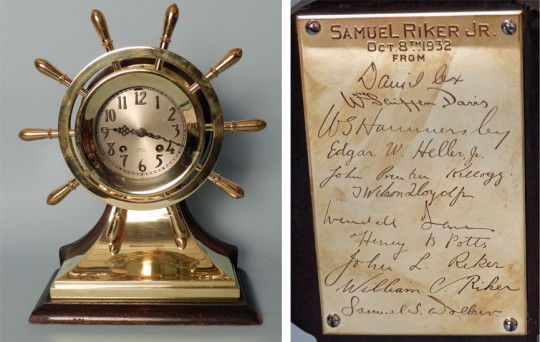 12
1
2
3
4
5
6
7
8
9
10
11
SAMUEL RIKER JR.
OCT. 8TH 1932
FROM
Daniel Cox
Wm Scippen Davis
WS Hammersley
Edgar W. Heller, Jr.
John Kellogg
J Nelson Lloyd Jr
Wendell
Henry B Potts
John L. Riker
William C. Riker
Samuel S. Walker